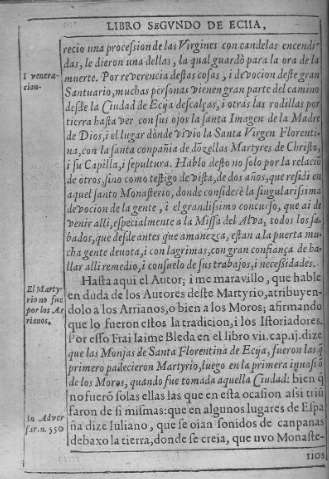 LIBRO SEGVNDO DE ECIIA,
recio una procession de las Virgines con candelas encendi-
das, le dieron una dellas, la qual guardò para la ora de la
muerte. Por reverencia destas cosas, i devocion deste gran
Santuario, muchas personas vienen gran parte del camino
desde la Ciudad de Ecija descalças, i otras las rodillas por
tierra hasta ver con sus ojos la santa Imagen de la Madre
de Dios, i el lugar dònde vivio la Santa Virgen Florenti-
na, con la santa conpañia de dõzellas Martyres de Christo,
i su Capilla, i sepultura. Hablo desto no solo por la relaciõ
de otros, sino como testigo de vista, de dos años, que residi en
aquel santo Monasterio, donde consideré la singularissima
devocion de la gente, i el grandissimo concurso, que ai de
venir alli, especialmente a la Missa del Alva, todos los sa-
bados, que desde antes que amanezca, estan a la puerta mu-
cha gente devota, i con lagrimas, con gran confiança de ha-
llar alli remedio, i consuelo de sus trabajos, i necessidades.
Hasta aqui el Autor; i me maravillo, que hable
en duda de los Autores deste Martyrio, atribuyen-
dolo a los Arrianos, o bien a los Moros; afirmando
que lo fueron estos la tradicion, i los Istoriadores.
Por esso Frai Iaime Bleda en el libro vii. cap. ij. dize
que las Monjas de Santa Florentina de Ecija, fueron las q̃
primero padecieron Martyrio, luego en la primera
de los Moros, quando fue tomada aquella Ciudad: bien q̃
no fuerõ solas ellas las que en esta ocasion assi triũ
faron de si mismas: que en algunos lugares de Espa
ña dize Iuliano, que se oian sonidos de canpanas
debaxo la tierra, donde se creia, que uvo Monaste-
rios
i venera-
cion.
El Marty
rio no fue
por los Ar
rianos,
In Adver
ser. n. 550